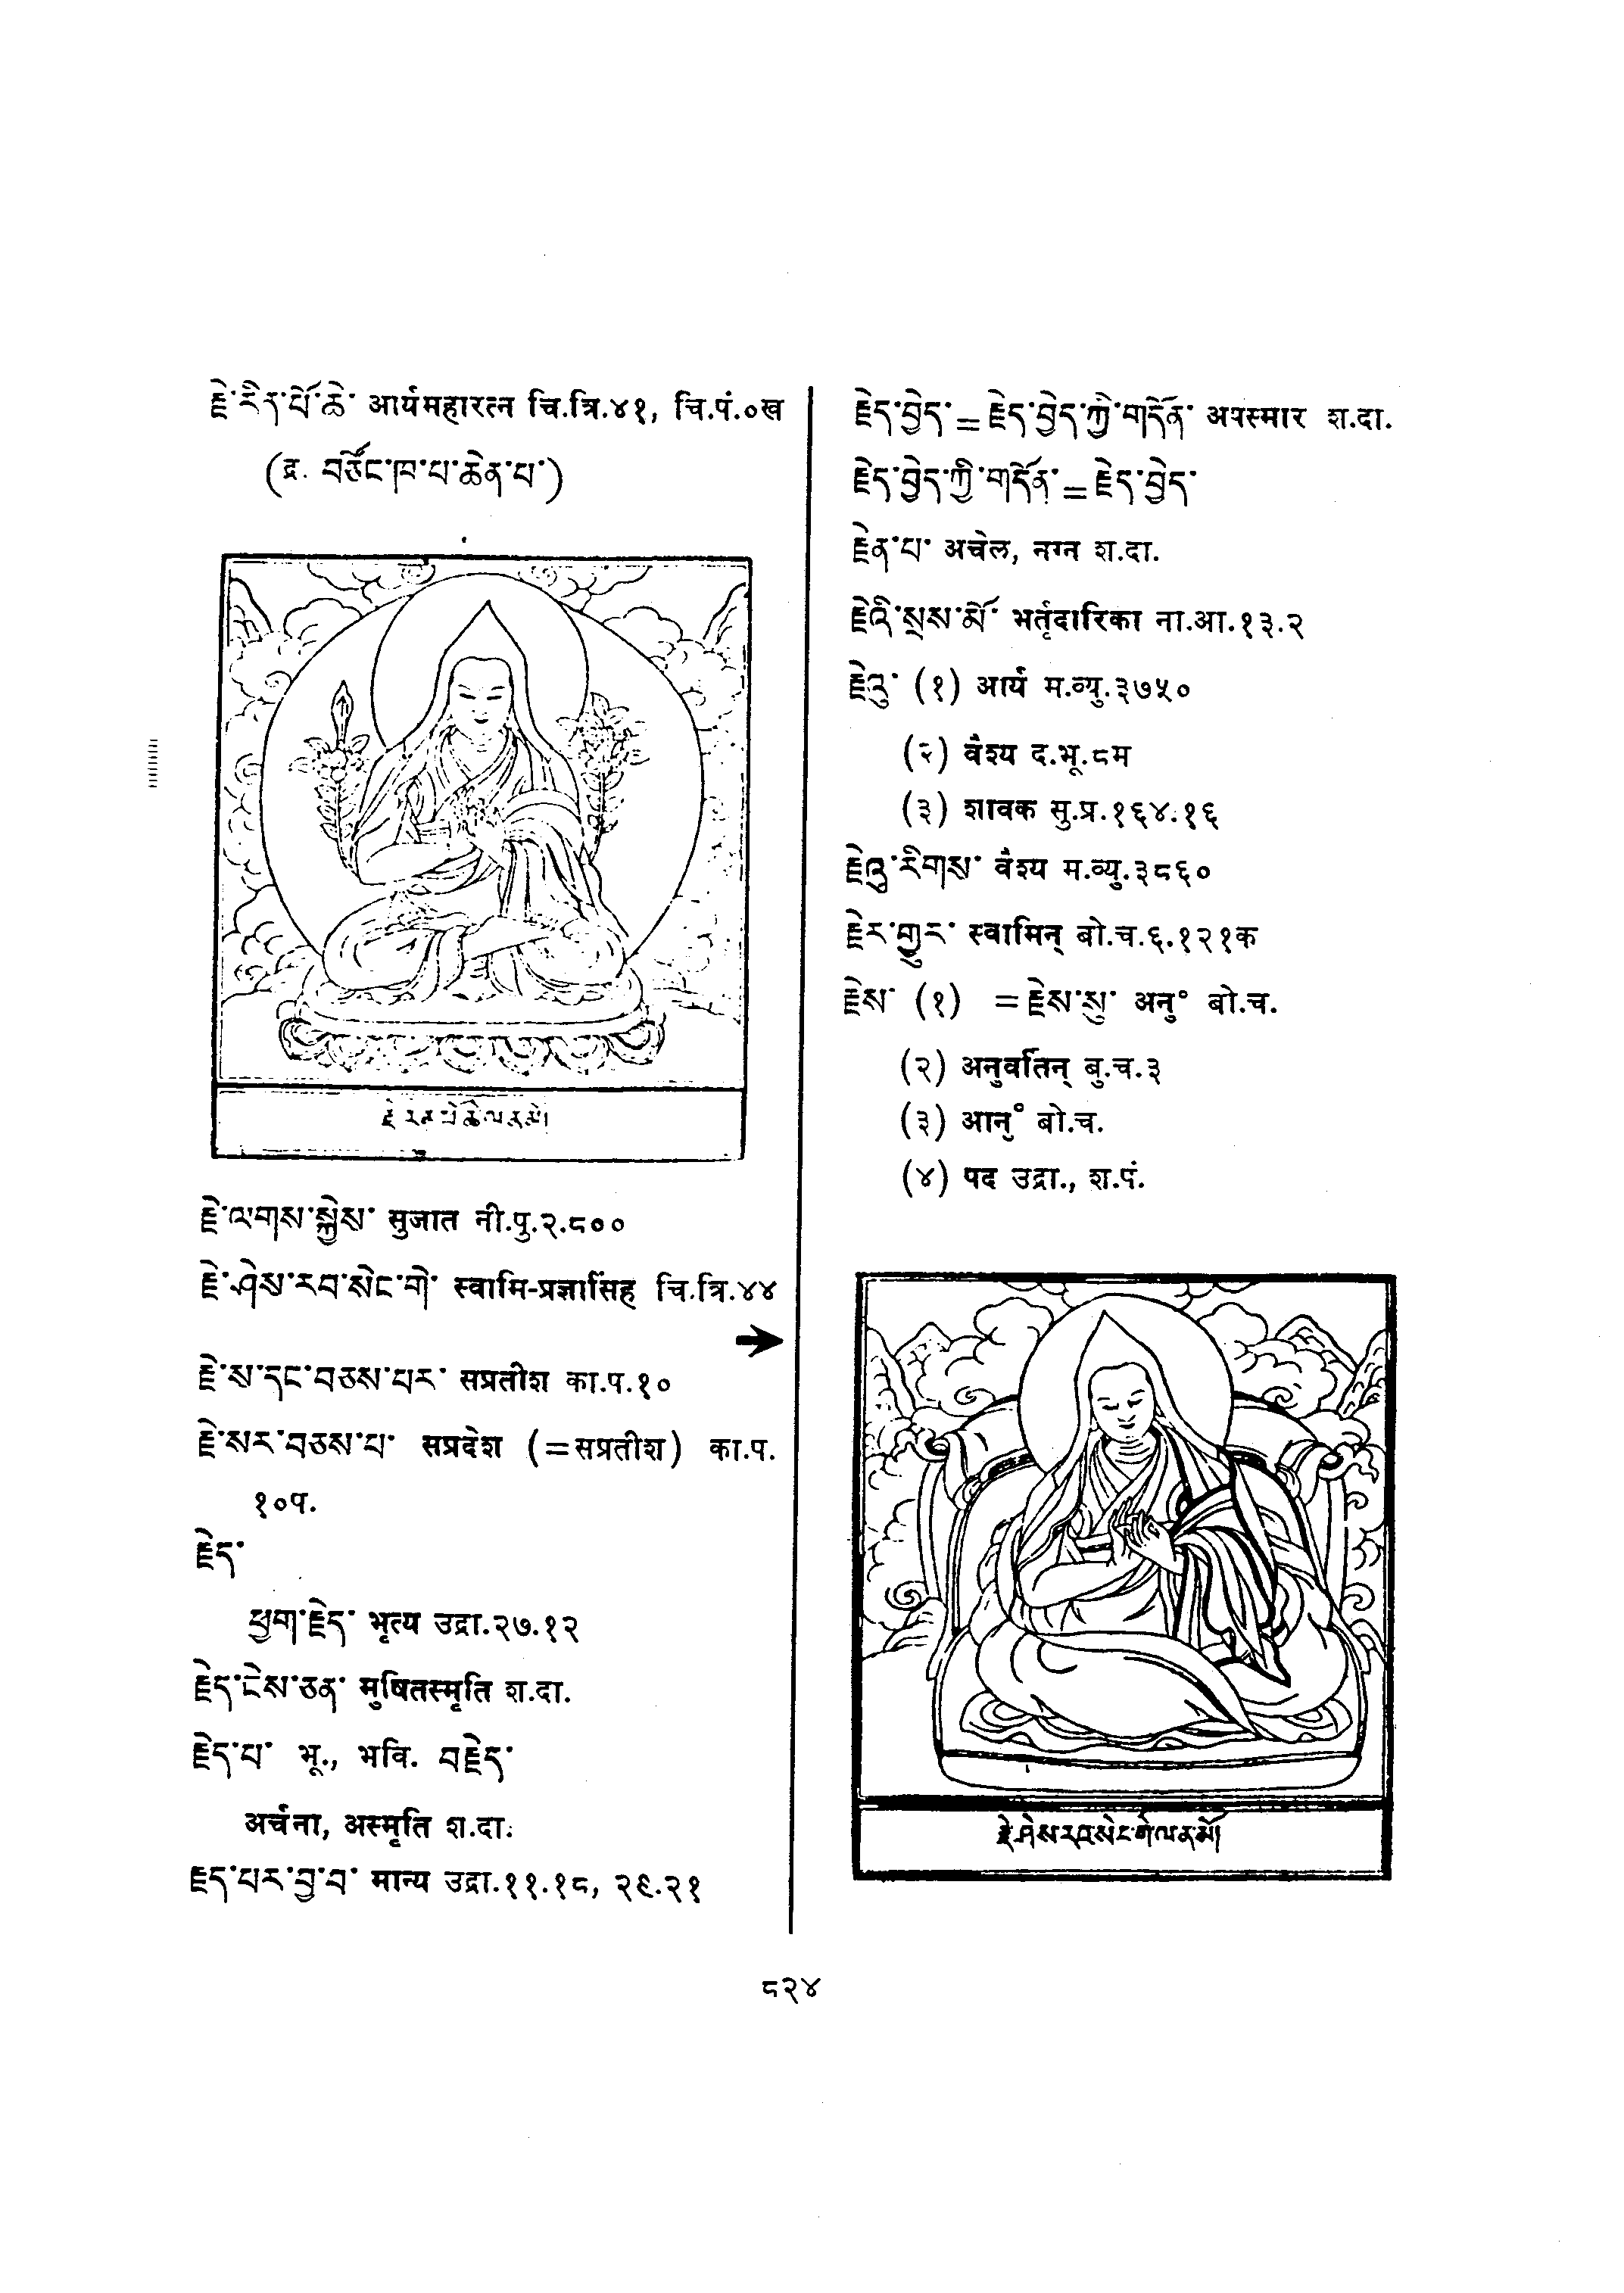 རྗེ་རིན་པོ་ཆེ་ आर्यमहारत्न चि.त्रि.४१, चि.पं.०ख
(द्र. བཙོང་ཁ་པ་ཆེན་པ་)
རྗེ་ལེགས་སྐྱེས་ सुजात नी.पु.२.८००
རྗེ་ཤེས་རབ་སེང་གེ་ स्वामि-प्रज्ञासिंह चि.त्रि.४४
→
རྗེ་ས་དང་བཅས་པར་ सप्रतीश का.प.१०
རྗེ་སར་བཅས་པ་ सप्रदेश (=सप्रतीश) का.प.
१०प.
རྗེད་
ཕྱག་རྗེད་ भृत्य उद्रा.२७.१२
རྗེད་ངེས་ཅན་ मुषितस्मृति श.दा.
རྗེད་པ་ भू., भवि. བརྗེད་
अर्चना, अस्मृति श.दा.
རྗེད་པར་བྱ་བ་ मान्य उद्रा.११.१८, २९.२१
རྗེད་བྱེད་=རྗེད་བྱེད་ཀྱི་གདོན་ अपस्मार श.दा.
རྗེད་བྱེད་ཀྱི་གདོན་=རྗེད་བྱེད་
རྗེན་པ་ अचेल, नग्न श.दा.
རྗེའི་སྲས་མོ་ भर्तृदारिका ना.आ.१३.२
རྗེའུ་ (१) आर्य म.व्यु.३७५०
(२) वैश्य द.भू.८म
(३) शावक सु.प्र.१६४.१६
རྗེའུ་རིགས་ वैश्य म.व्यु.३८६०
རྗེར་གྱུར་ स्वामिन् बो.च.६.१२१क
རྗེས་ (१) =རྗེས་སུ་ अनु° बो.च.
(२) अनुवर्तिन् बु.च.३
(३) आनु° बो.च.
(४) पद उद्रा., श.पं.
རྗེ་ཤེས་རབ་སེང་གེ་ལ་ན་མོ།
८२४